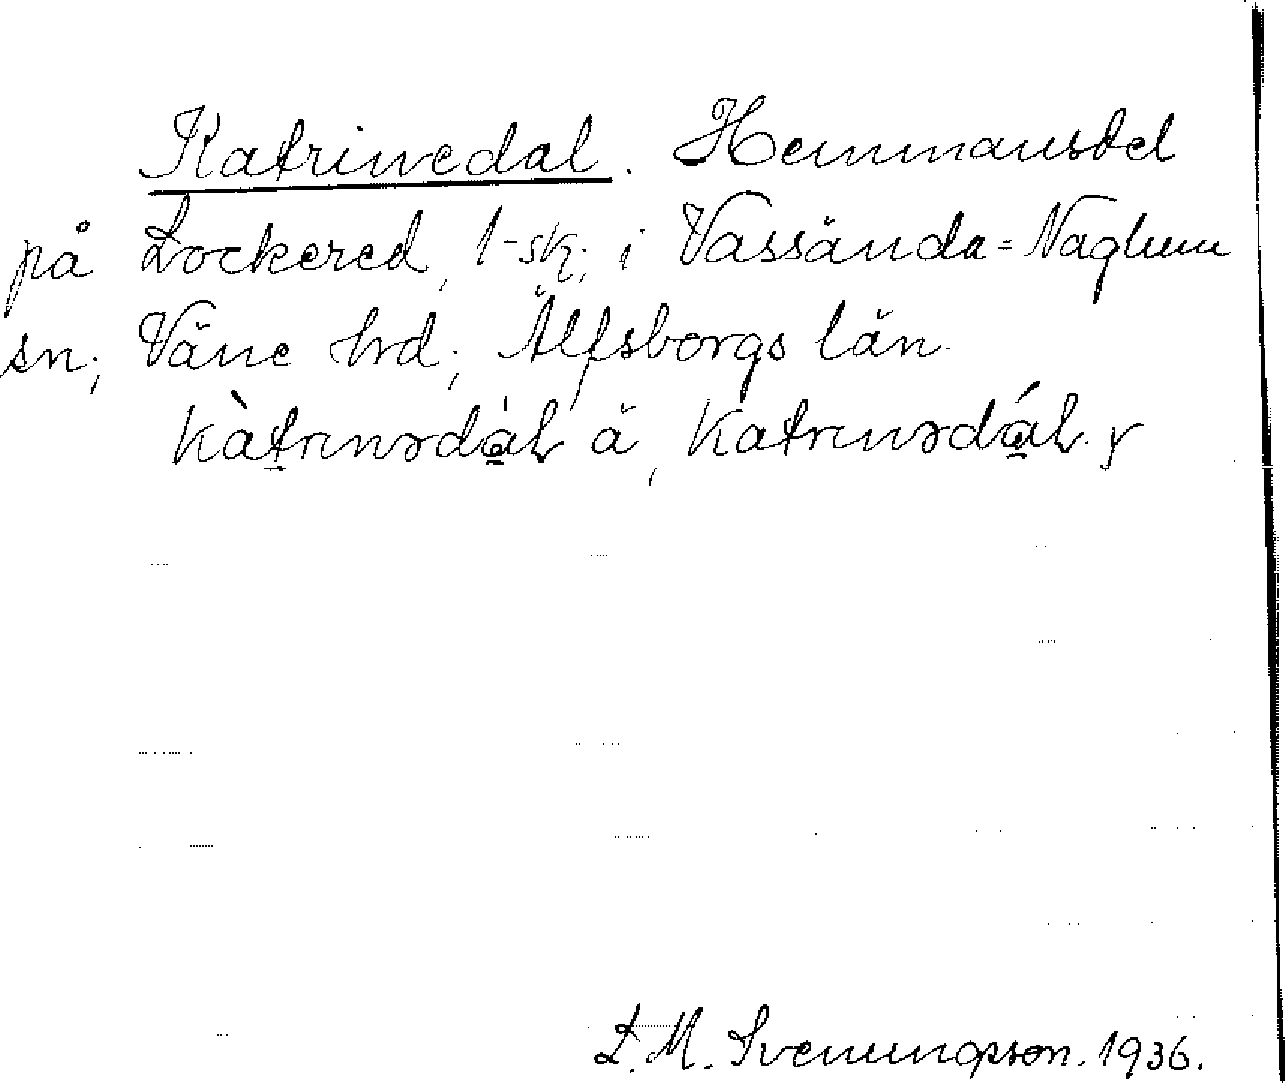 Katrinedal. Hemmansdel
på Lockered, 1-sk; i Vassända=Naglum
sn; Väne hrd; Älfsborgs län.
kàtrɩnədȧl ä, katrɩnədál. y
L. M. Svenungson. 1936.